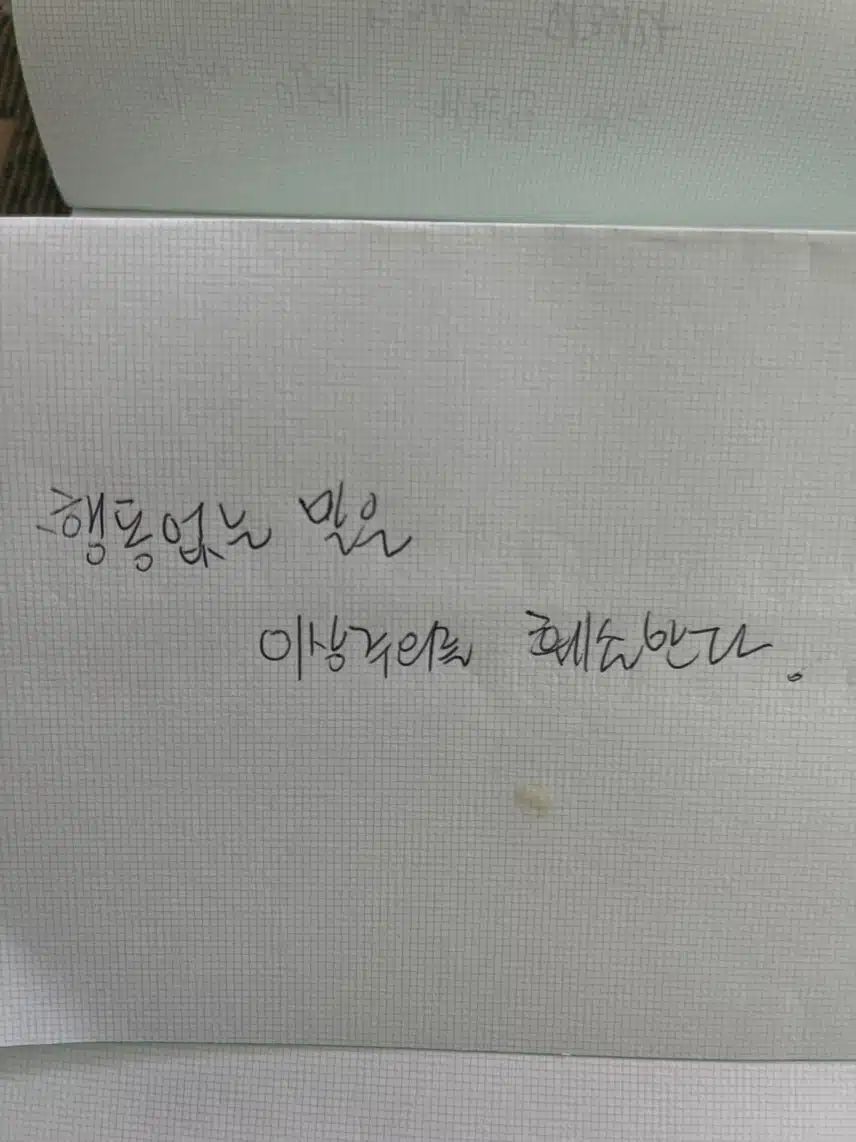 행동없는 말은
이상주의를 훼손한다.